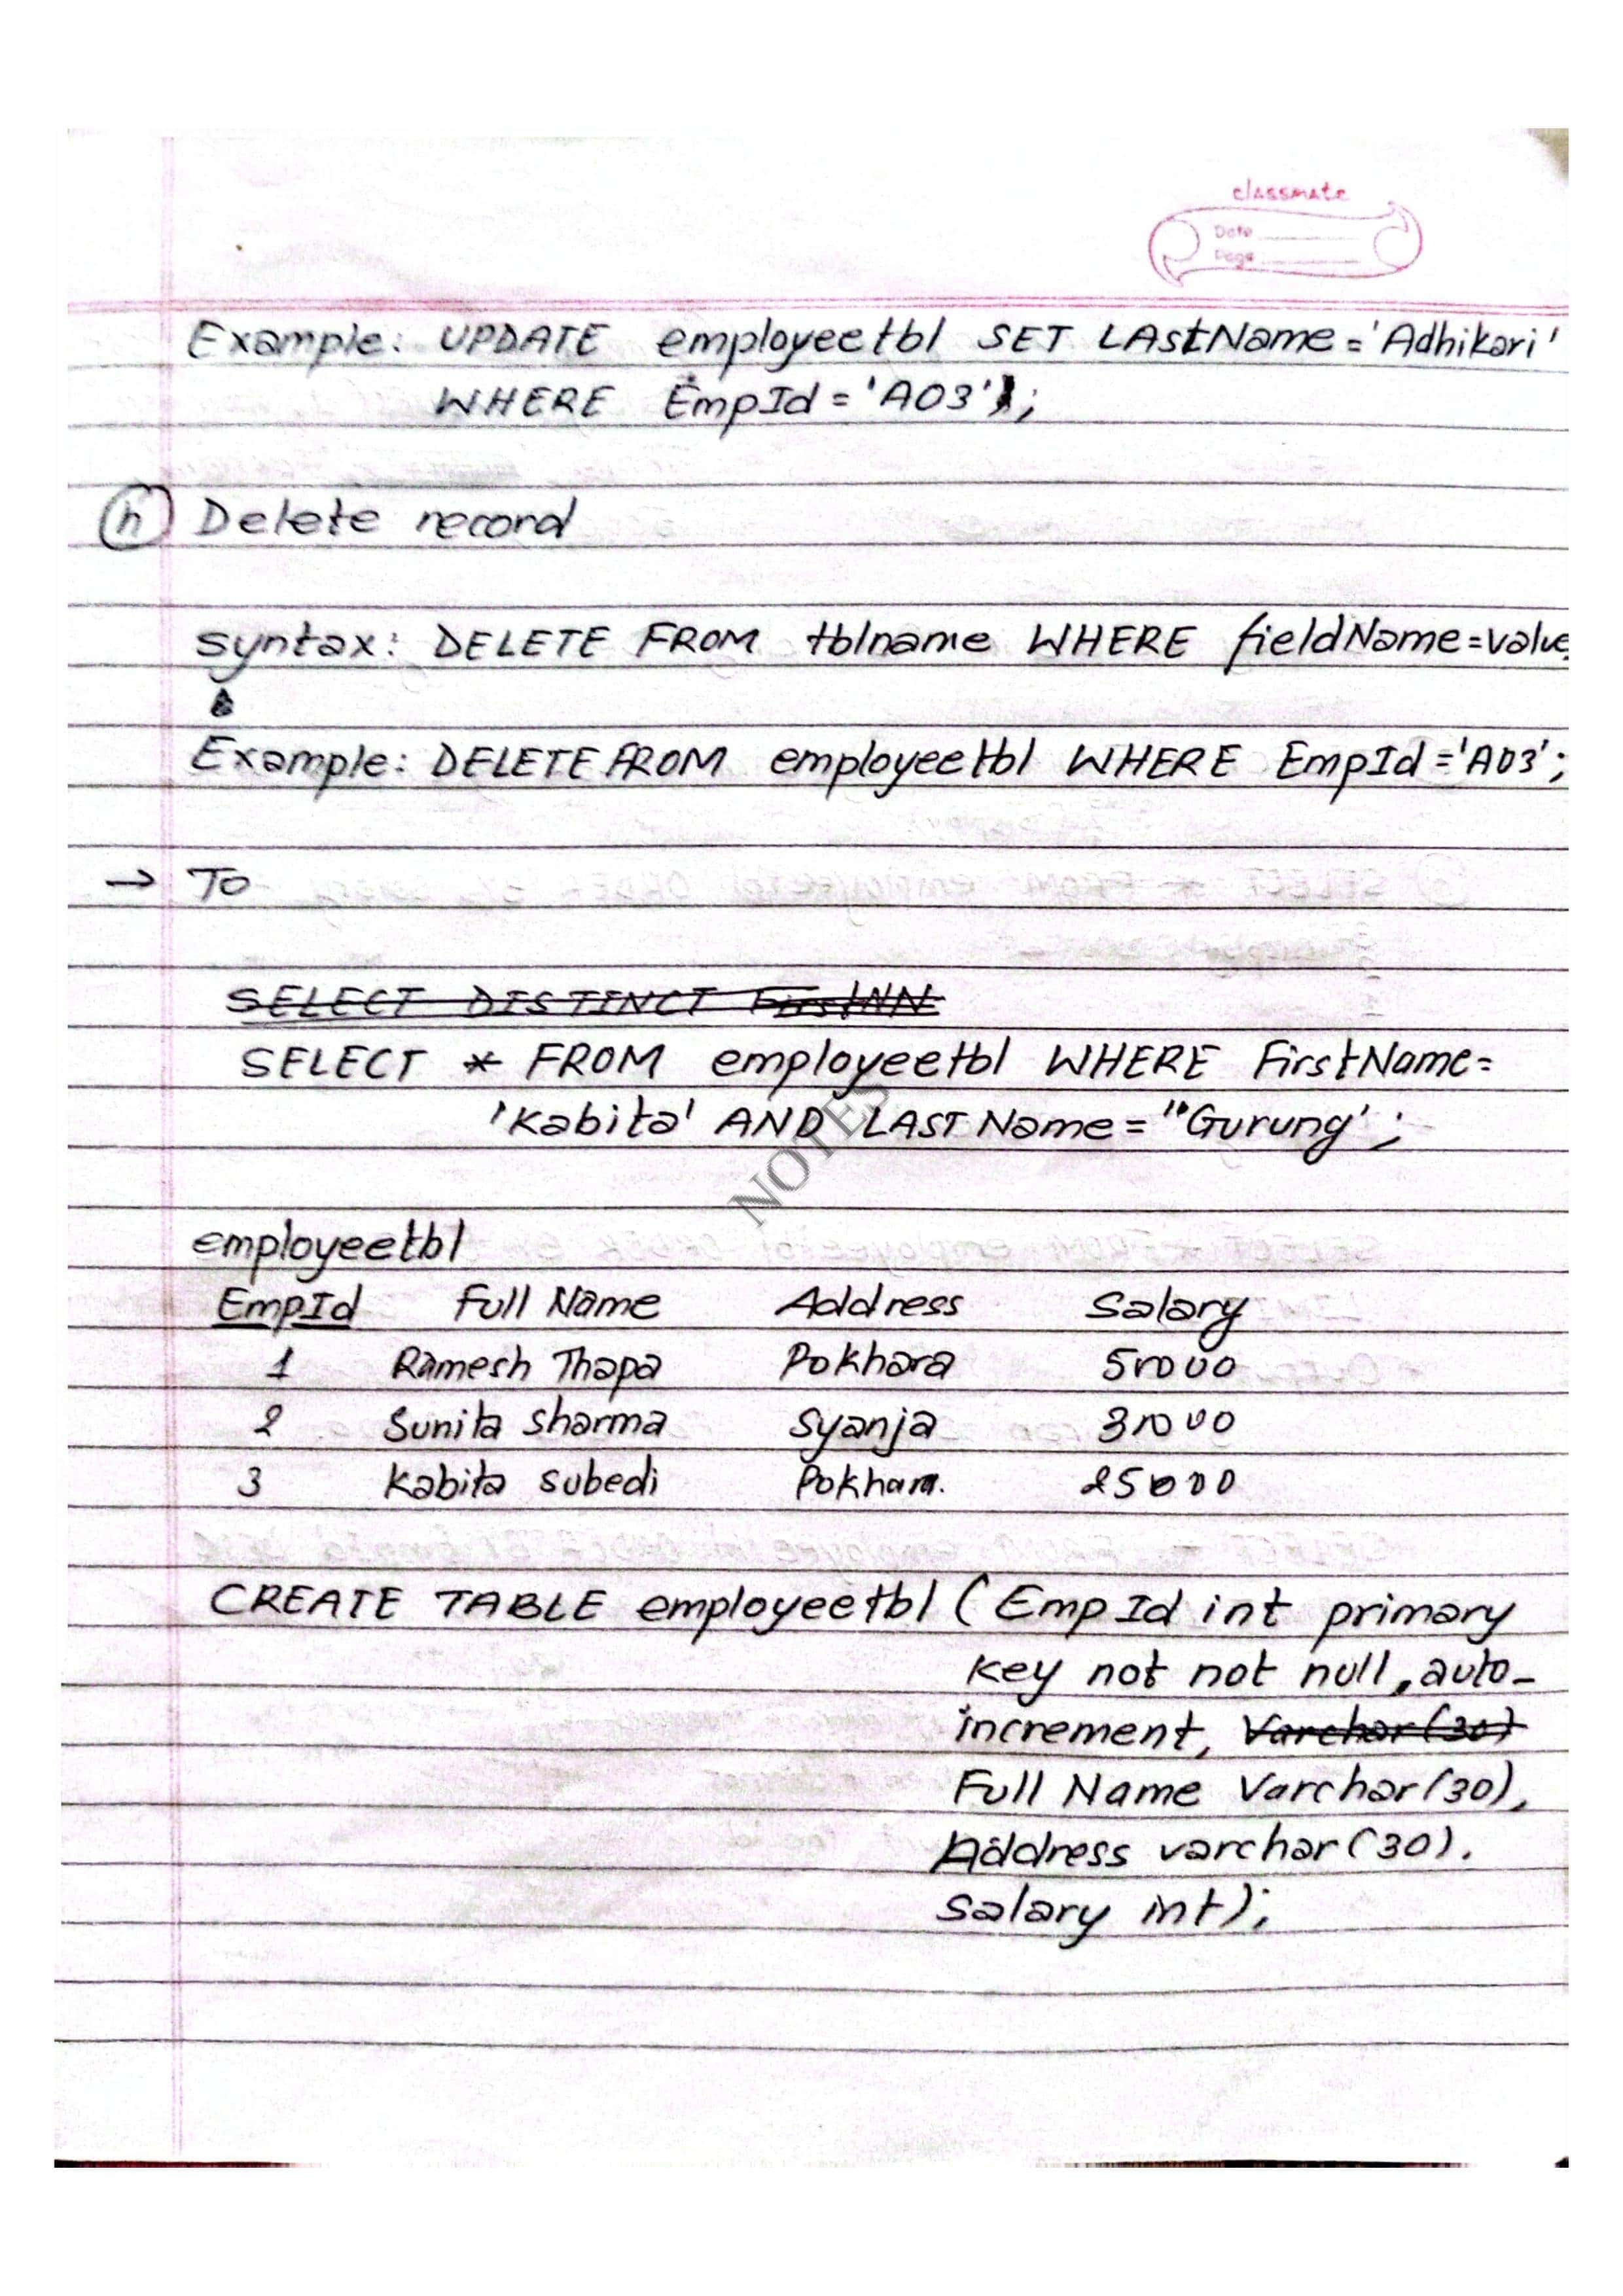 classmate
Date
Page
Example: UPDATE employeetbl SET LAstName='Adhikari'
WHERE EmpId='A03';
(h) Delete record
syntax: DELETE FROM tblname WHERE fieldName=value
Example: DELETE FROM employeetbl WHERE EmpId='A03';
→ To
SELECT DISTINCT
SELECT * FROM employeetbl WHERE FirstName=
'Kabita' AND LASTName="Gurung';
NOTES
employeetbl
EmpId Full Name Address Salary
1 Ramesh Thapa Pokhara 50000
2 Sunita sharma syanja 30000
3 Kabita subedi Pokhara. 25000
CREATE TABLE employeetbl (EmpId int primary
key not not null, auto-
increment, Varchar(30)
Full Name Varchar(30),
Address varchar(30).
salary int);